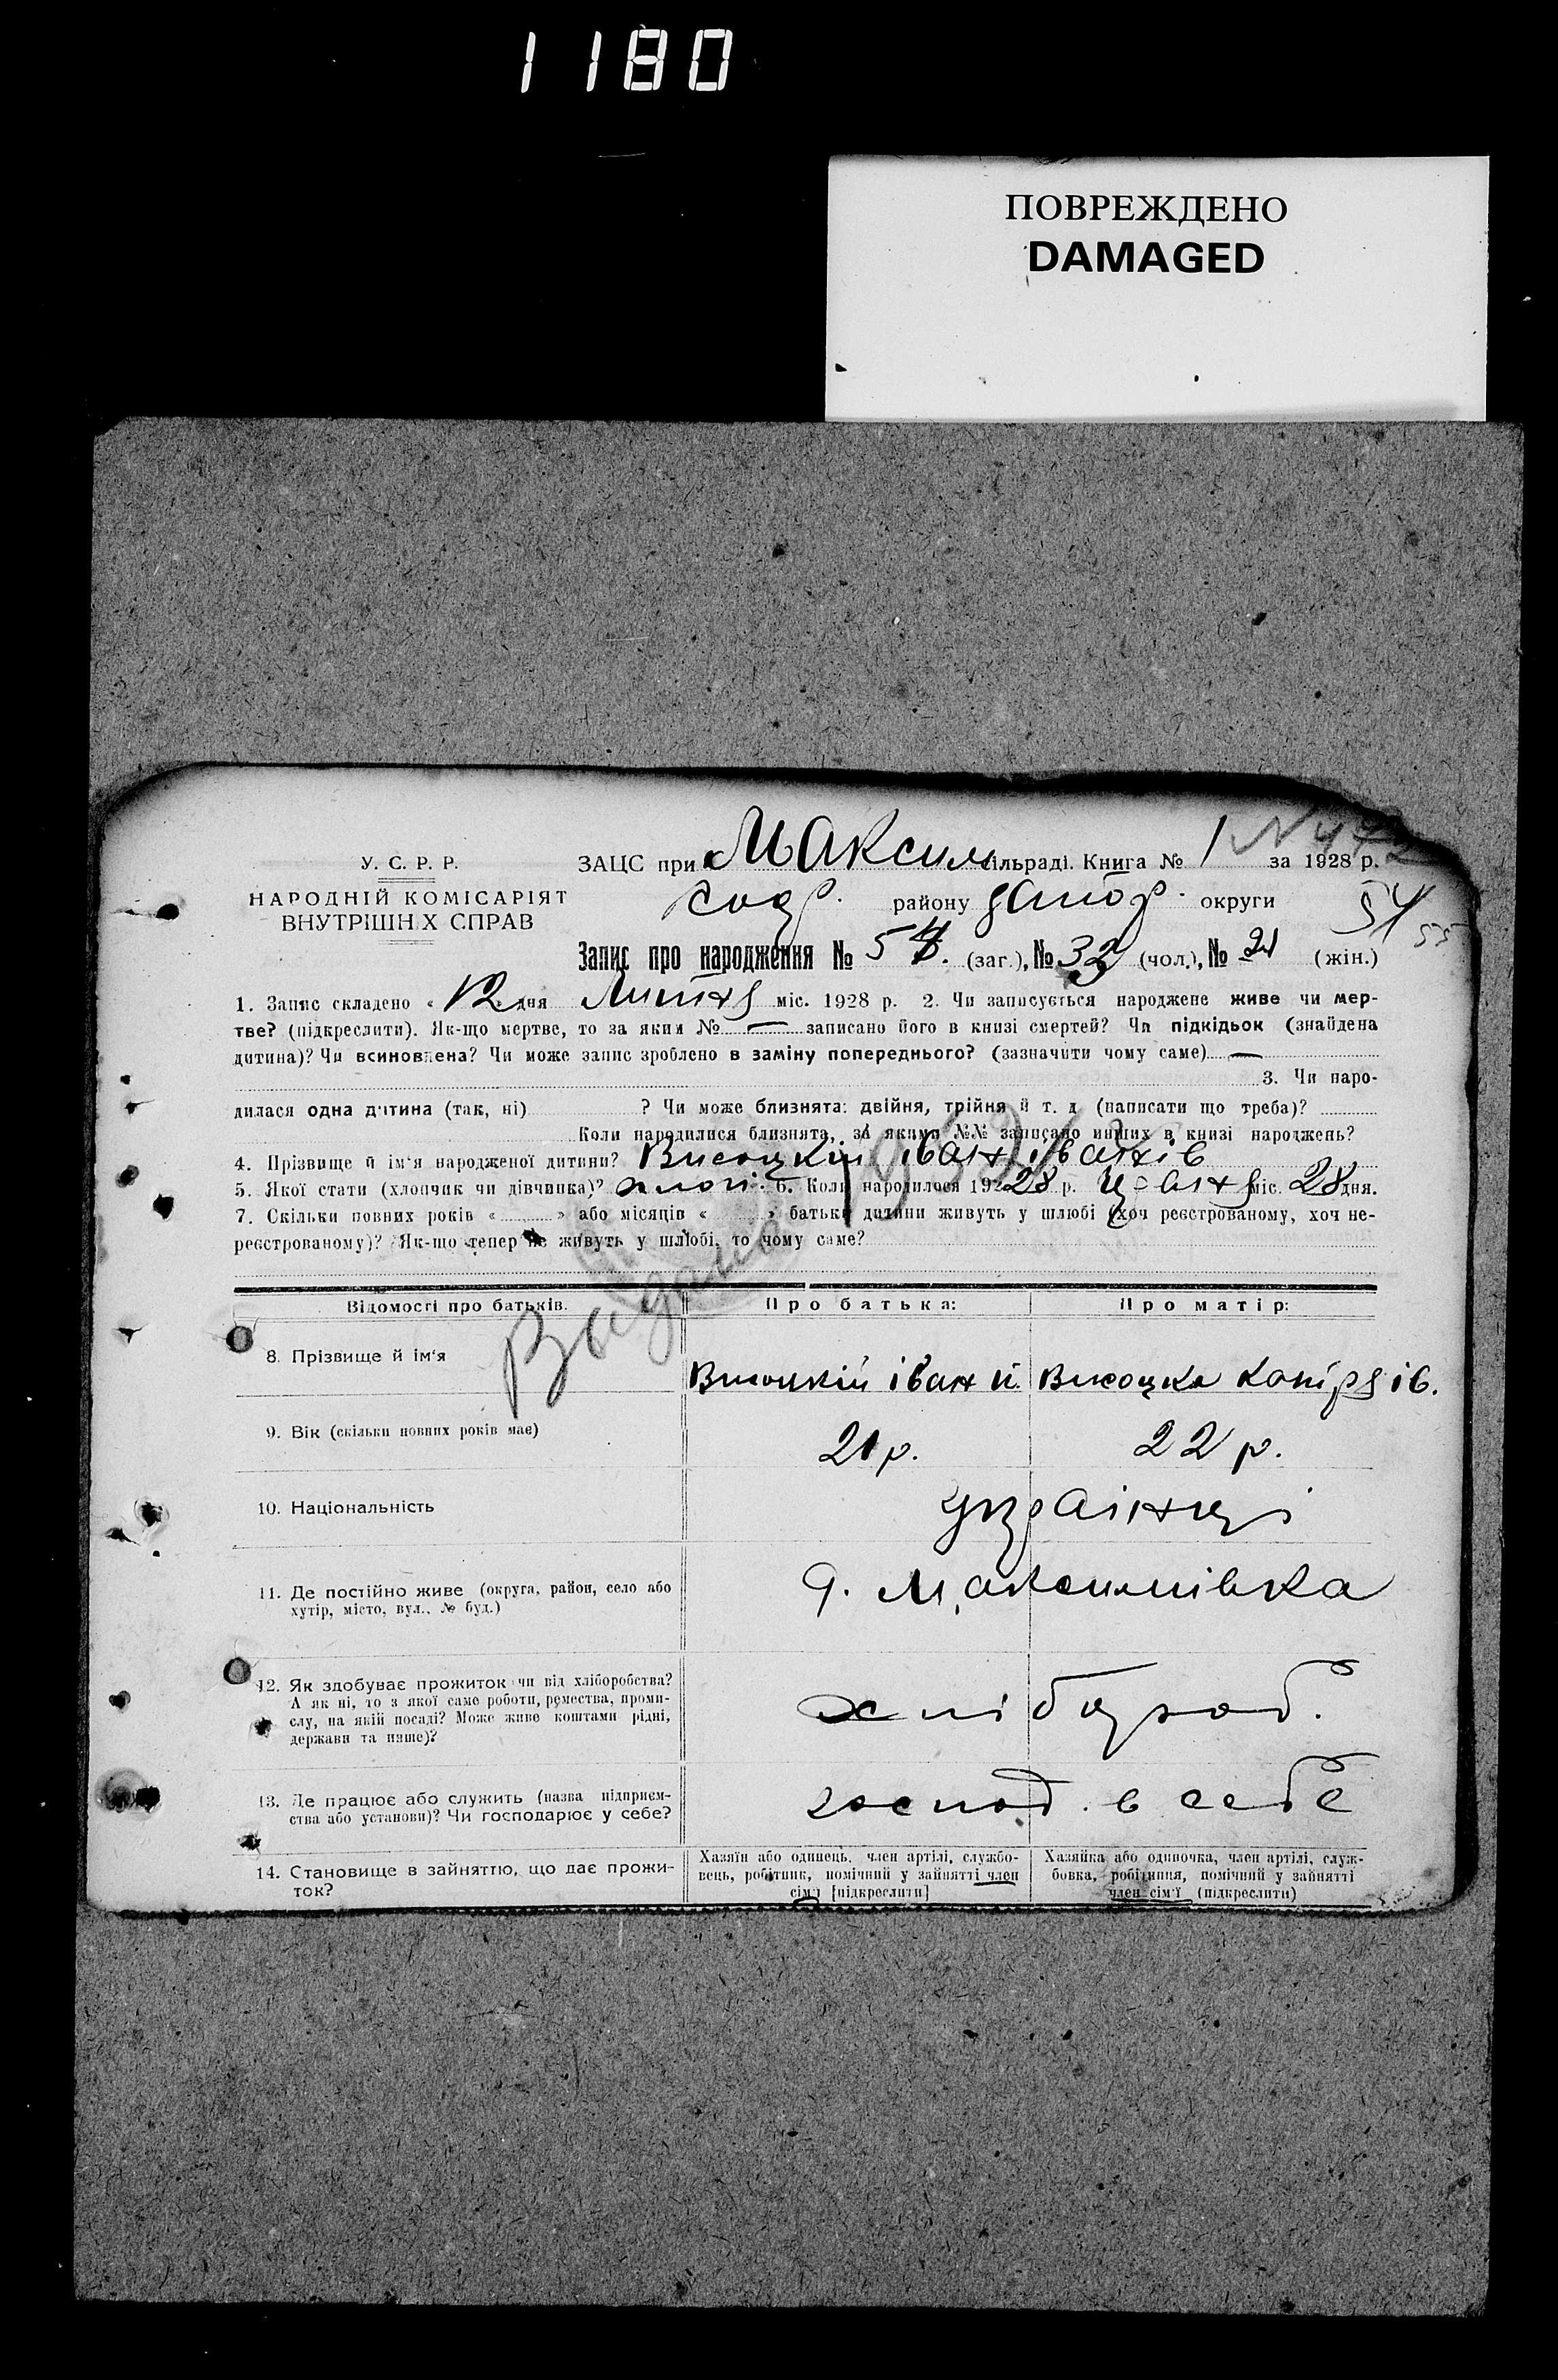 1180
ПОВРЕЖДЕНО
DAMAGED
У. С. Р. Р.
НАРОДНІЙ КОМІСАРІЯТ
ВНУТРІШНІХ СПРАВ
ЗАЦС при Максим сільраді. Книга № 1 за 1928 р.
району Запор. округи
54 55
Запис про народження № 54. (заг.), № 32 (чол.), № (жін.)
1. Запис складено « 12 дня Липня міс. 1928 р. 2. Чи записується народжене живе чи мер-
тве? (підкреслити). Як-що мертве, то за яким № — записано його в книзі смертей? Чи підкідьок (знайдена
дитина)? Чи всиновлена? Чи може запис зроблено в заміну попереднього? (зазначити чому саме) —
3. Чи наро-
дилася одна дитина (так, ні) ? Чи може близнята: двійня, трійня й т. д (написати що треба)?
Коли народилися близнята, за якими №№ записано инших в книзі народжень?
4. Прізвище й ім'я народженої дитини? Висоцкій іван іванів
5. Якої стати (хлопчик чи дівчинка)? хлопч. 6. Коли народилося 1928 р. міс. 28 дня.
7. Скільки повних років « » або місяців « » батьки дитини живуть у шлюбі (хоч реєстрованому, хоч не-
реєстрованому)? Як-що тепер не живуть у шлюбі, то чому саме?
Видано
Відомості про батьків. Про батька: Про матір:
8. Прізвище й ім'я Висоцкій іван й. Висоцка катіря ів.
9. Вік (скільки повних років має) 21 р. 22 р.
10. Національність українці
11. Де постійно живе (округа, район, село або
хутір, місто, вул., № буд.) Максимівка
12. Як здобуває прожиток чи від хліборобства?
А як ні, то з якої саме роботи, ремества, проми-
слу, на якій посаді? Може живе коштами рідні,
держави та инше)? хлібороб.
13. Де працює або служить (назва підприєм-
ства або установи)? Чи господарює у себе? господ. в себе
14. Становище в зайняттю, що дає прожи-
ток?
Хазяїн або одинець, член артілі, службо-
вець, робітник, помічний у зайнятті член
сім'ї [підкреслити]
Хазяйка або одиночка, член артілі, служ-
бовка, робітниця, помічний у зайнятті
член сім'ї (підкреслити)